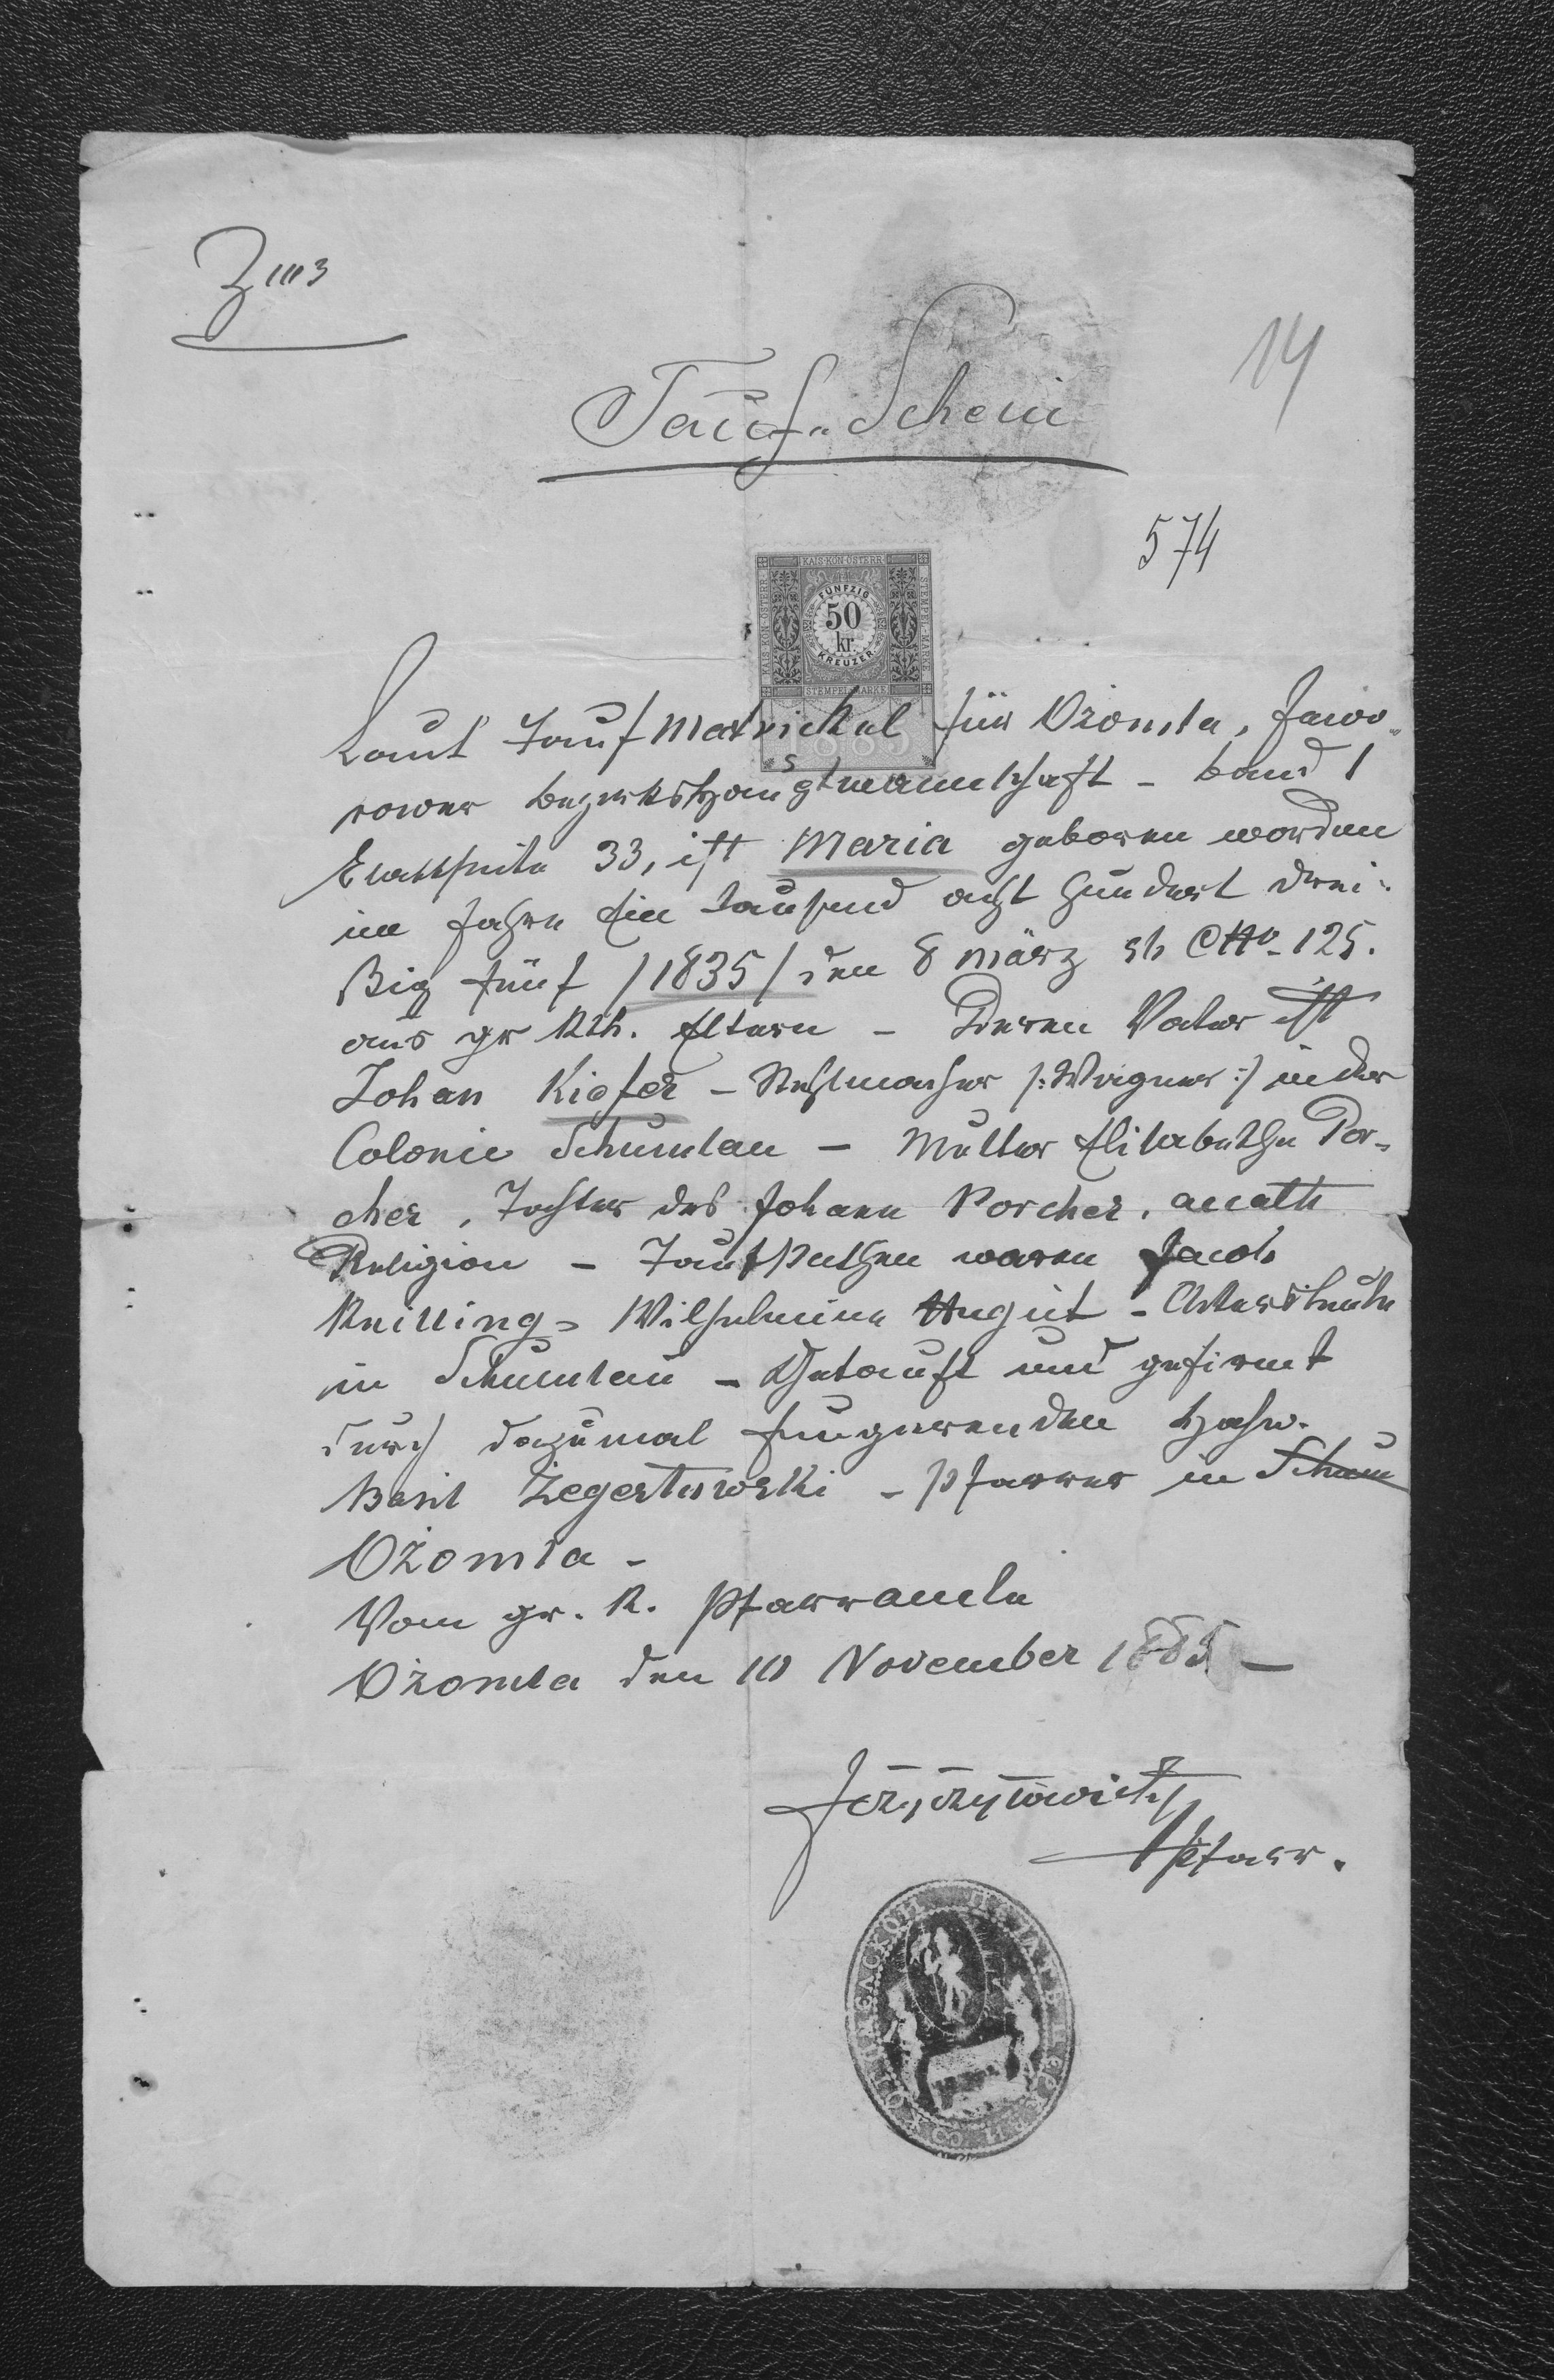 Z 1113
14
Tauf-Schein
574
KAIS·KÖN·ÖSTERR·
STEMPEL-MARKE
FÜNFZIG
50
kr.
KREUZER
STEMPELMARKE
1885
Laut Tauf Matrickel für Ożomla, Jawo-
rower Bezirkshauptmannschaft - Band 1
Blattseite 33, ist Maria geboren worden
im Jahre Ein tausend acht hundert drei-
ßig fünf /1835/ den 8 März sb CNo 125.
aus gr Kth. Eltern - Deren Vater ist
Johan Kiefer - Stehlmacher /: Wagner :/ in der
Colonie Schumlau - Mutter Elisabethe Por-
cher, Tochter des Johann Porcher, acath
Religion - Taufpathen waren Jacob
Knilling - Wilhelmine - Ackersleute
in Schumlau - Getauft und gefirmt
durch dazumal fungirenden Hochw.
Basil Żegestowski - Pfarrer in Schum
Ożomla -
Vom gr. K. Pfarramte
Ożomla den 10 November 1885 -
Pfarr.